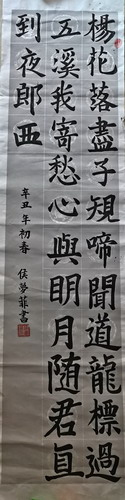 楊花落盡子規啼聞道龍標過
五溪我寄愁心與明月随君直
到夜郎西
辛丑年初春 侯夢菲書